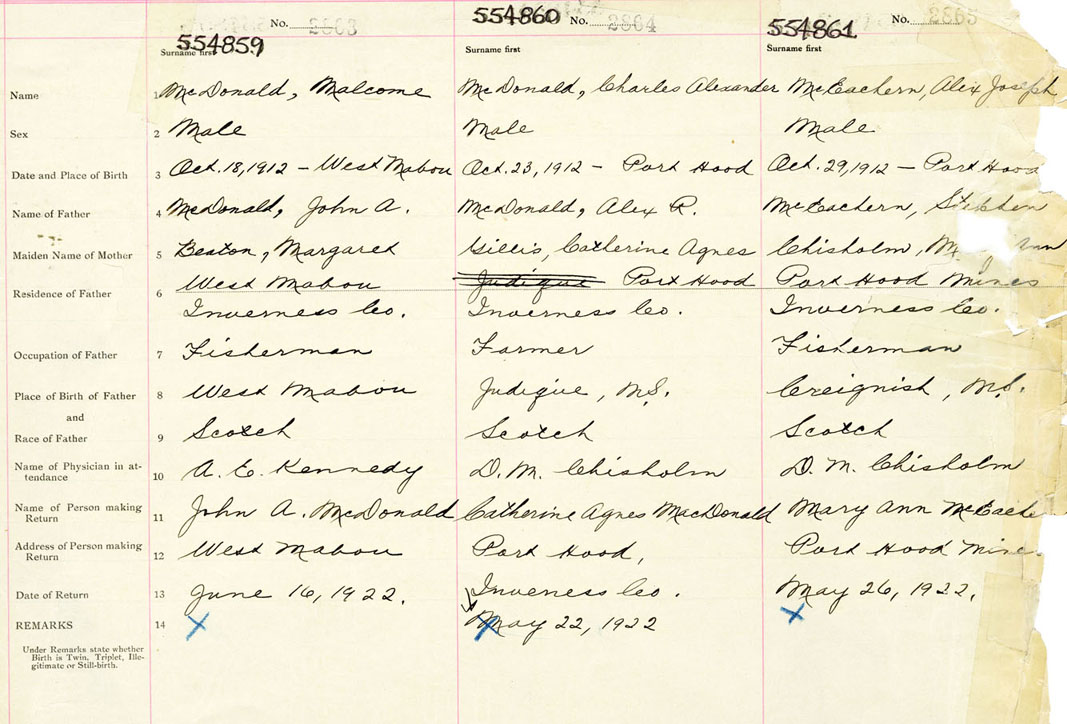 No. 2863
554860 No. 2864
554861 No. 2865
554859
Surname first
Surname first
Surname first
Name 1 McDonald, Malcome McDonald, Charles Alexander McEachern, Alex Joseph,
Sex 2 Male Male Male
Date and Place of Birth 3 Oct. 18, 1912 - West Mabou Oct. 23, 1912 - Port Hood Oct. 29, 1912 - Port Hood
Name of Father 4 McDonald, John A. McDonald, Alex R. McEachern, Stephen
Maiden Name of Mother 5 Beaton, Margaret Gillis, Catherine Agnes Chisholm,
Residence of Father 6 West Mabou Judique Port Hood Port Hood Mines
Inverness Co. Inverness Co. Inverness Co.
Occupation of Father 7 Fisherman Farmer Fisherman
Place of Birth of Father 8 West Mabou Judique, N.S. Creignish, N.S.
and
Race of Father 9 Scotch Scotch Scotch
Name of Physician in at-
tendance 10 A. E. Kennedy D. M. Chisholm D. M. Chisholm
Name of Person making
Return 11 John A. McDonald Catherine Agnes MacDonald Mary Ann McEache
Address of Person making
Return 12 West Mabou Port Hood, Port Hood Mine
Date of Return 13 June 16, 1922. Inveness Co. May 26, 1922.
REMARKS 14 X May 22, 1922 X
Under Remarks state whether
Birth is Twin, Triplet, Ille-
gitimate or Still-birth.